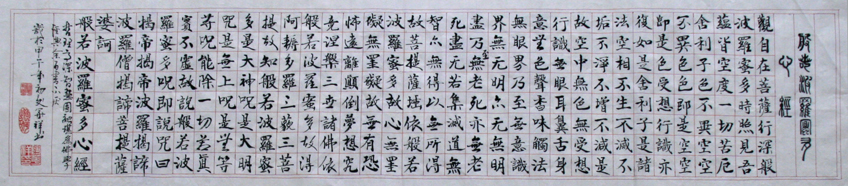 般若波羅蜜多
心經
觀自在菩薩行深般
波羅蜜多時照見五
蘊皆空度一切苦厄
舍利子色不異空空
不異色色即是空空
即是色受想行識亦
復如是舍利子是諸
法空相不生不滅不
垢不淨不增不減是
故空中無色無受想
行識無眼耳鼻舌身
意無色聲香味觸法
無眼界乃至無意識
界無無明亦無無明
盡乃至無老死亦無老
死盡無苦集滅道無
智亦無得以無所得
故菩提薩埵依般若
波羅蜜多故心無罣
礙無罣礙故無有恐
怖遠離顛倒夢想究
竟涅槃三世諸佛依
般若波羅蜜多故得
阿耨多羅三藐三菩
提故知般若波羅蜜
多是大神咒是大明
咒是無上咒是無等
等咒能除一切苦真
實不虛故說般若波
羅蜜多咒即說咒曰
揭帝揭帝波羅揭諦
波羅僧揭諦菩提薩
婆訶
般若波羅蜜多心經